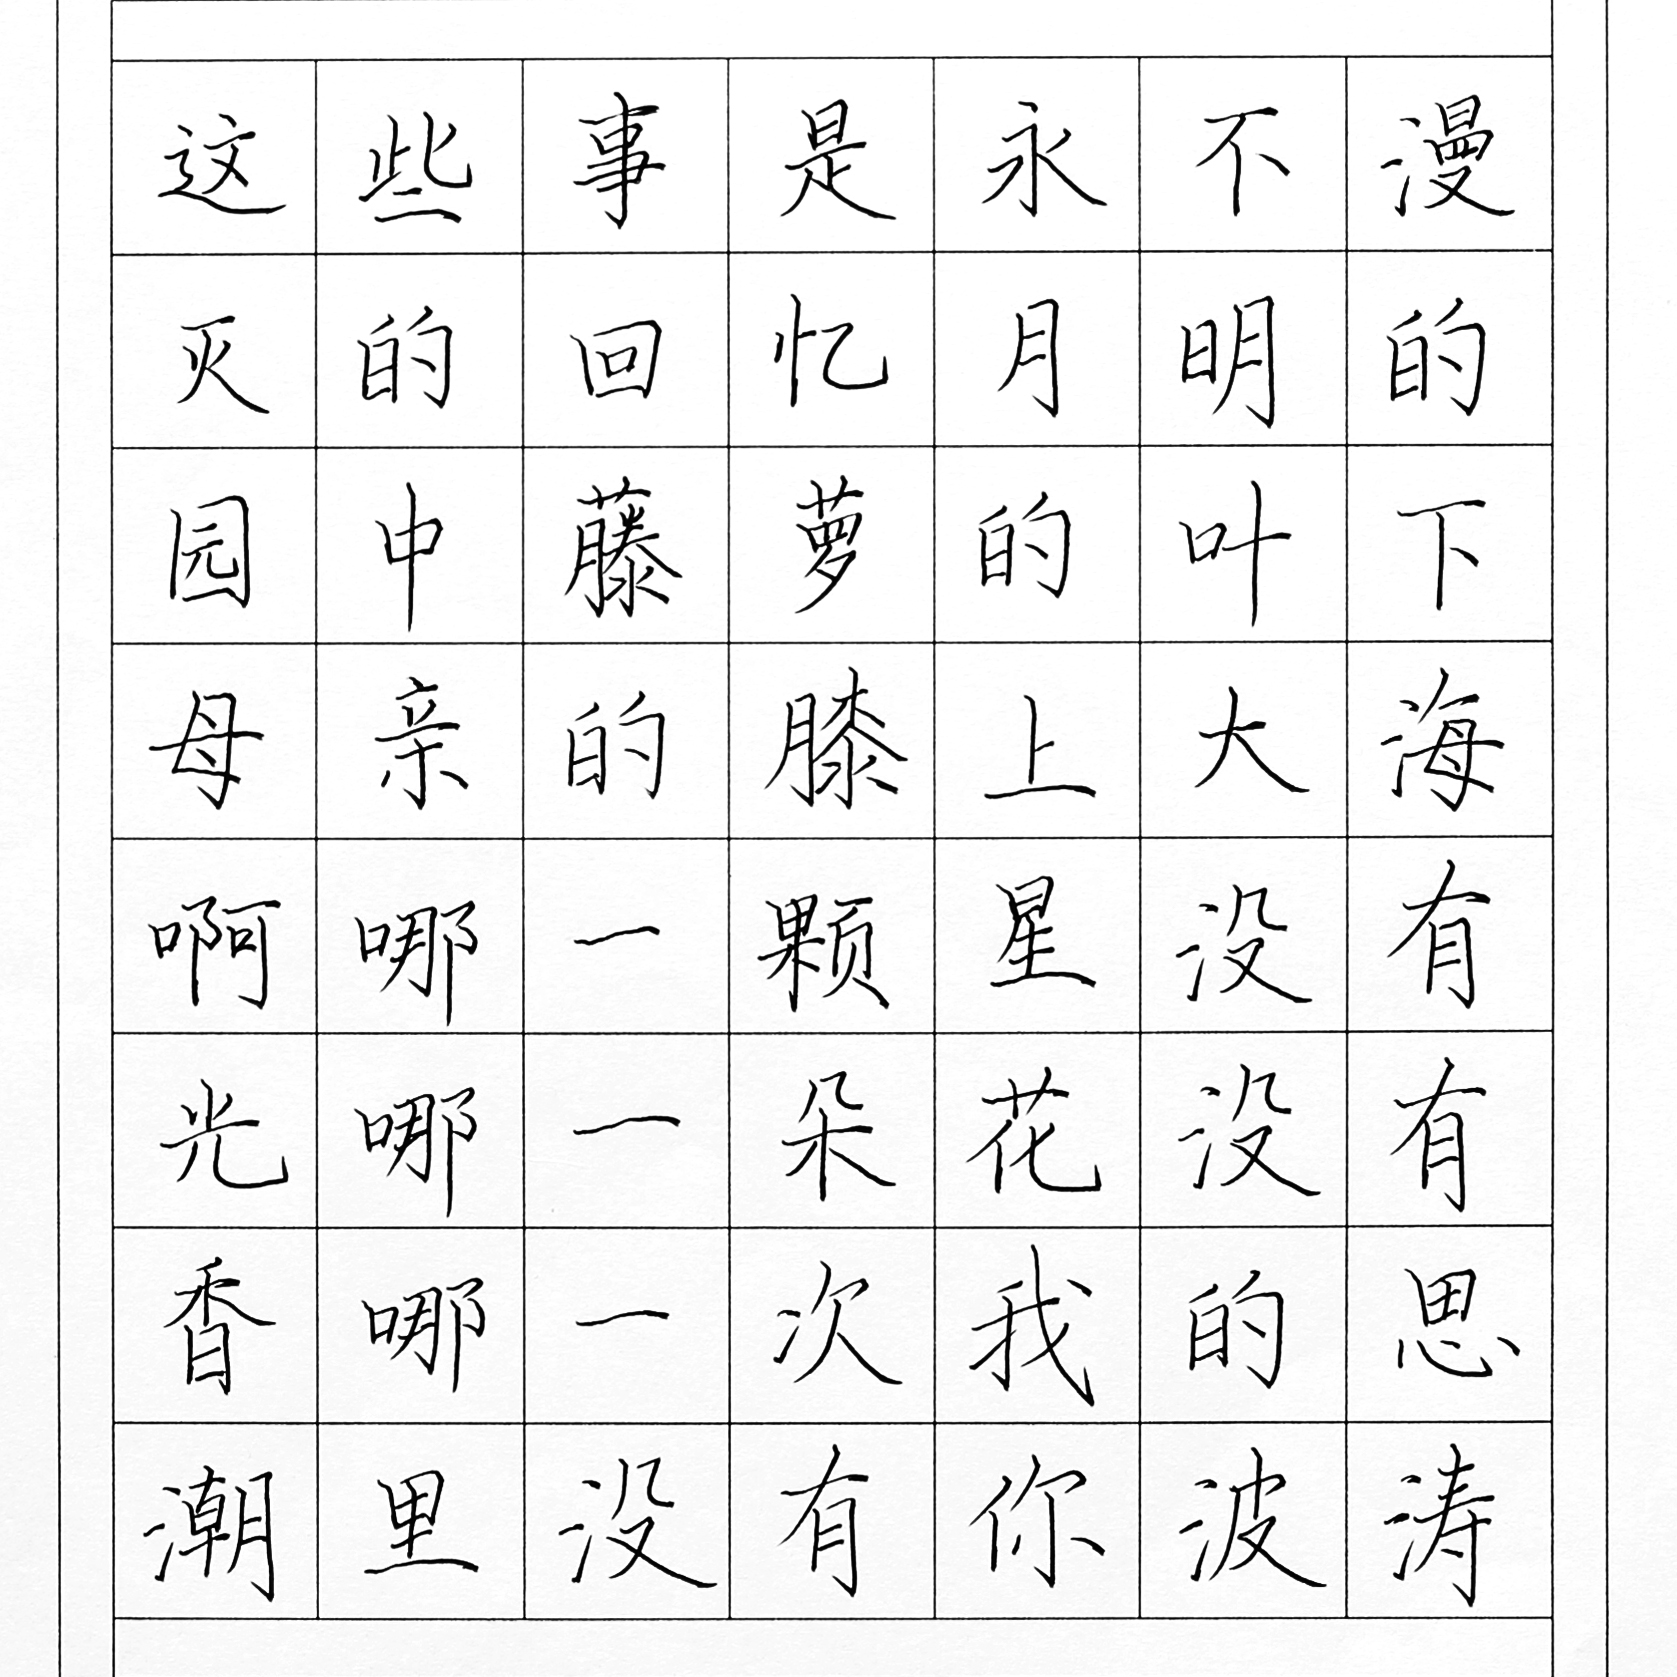 这些事是永不漫
灭的回忆月明的
园中藤萝的叶下
母亲的膝上大海
啊哪一颗星没有
光哪一朵花没有
香哪一次我的思
潮里没有你波涛